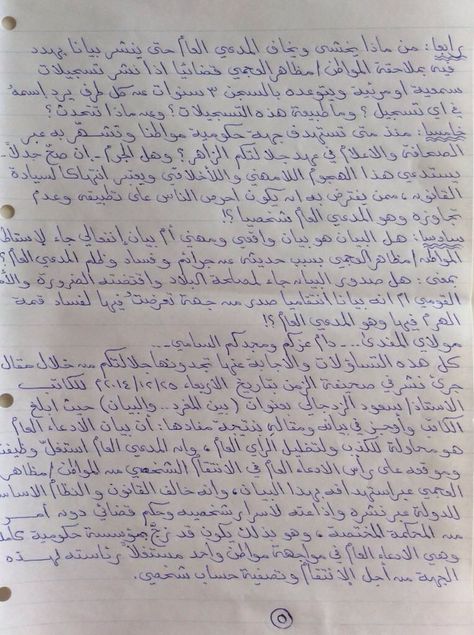 رابعا: من ماذا يخشى ويخاف المدعي العام حتى ينشر بيانا يهدد
فيه بملاحقة المواطن/ مظاهر العجمي قضائيا اذا نشر تسجيلات
سمعية او مرئية ويتوعده بالسجن ٣ سنوات عن كل طرف يرد اسمه
في اي تسجيل؟ وما طبيعة هذه التسجيلات؟ وعن ماذا تتحدث؟
خامسا: منذ متى تستهدف جهة حكومية مواطنا وتشهّر به عبر
الصحافة والاعلام في عهد جلالتكم الزاهر؟ وهل الجرم - إن صحّ جدلاً -
يستدعي هذا الهجوم اللامهني واللاأخلاقي ويعتبر انتهاكا لسيادة
القانون، ممن يفترض به انه يكون احرص الناس على تطبيقه وعدم
تجاوزه وهو المدعي العام شخصيا؟!
سادسا: هل البيان هو بيان واقعي ومهني أم بيان إنفعالي جاء لإستهداف
المواطن/ مظاهر العجمي بسبب حديثه عن جرائم وفساد وظلم المدعي العام؟
بمعنى: هل صدور البيان جاء لمصلحة البلاد واقتضته الضرورة والأمن
القومي ام انه بيانا انتقاميا صدر من جهة تعرضت فيها لفساد قمة
الهرم فيها وهو المدعي العام؟!
مولاي المفدى.. دام عزكم ومجدكم السامي...
كل هذه التساؤلات والاجابة عنها تجدونها جلالتكم من خلال مقال
جرئ نشر في صحيفة الزمن بتاريخ الاربعاء ٢٠١٤/١٢/٢٥ للكاتب
الاستاذ/ سعود الزدجالي بعنوان (بين الفرد.. والبيان) حيث ابلغ
الكاتب وأوجز في بيانه ومقاله بنتيجة مفادها: أن بيان الادعاء العام
هو محاولة للكذب ولتضليل الرأي العام، وانه المدعي العام استغلّ وظيفته
وموقعه على رأس الادعاء العام في الانتقام الشخصي من المواطن/ مظاهر
العجمي عبر استهدافه بهذا البيان، وانه خالف القانون والنظام الاساسي
للدولة عبر نشره واذاعته لأسرار شخصية وحكم قضائي دون أمر
من المحكمة المختصة، وهو بذلك يكون قد زجّ بمؤسسة حكومية كاملة
وهي الادعاء العام في مواجهة مواطن واحد مستغلاً رئاسته لهذه
الجهة من أجل الإنتقام وتصفية حساب شخصي.
٥